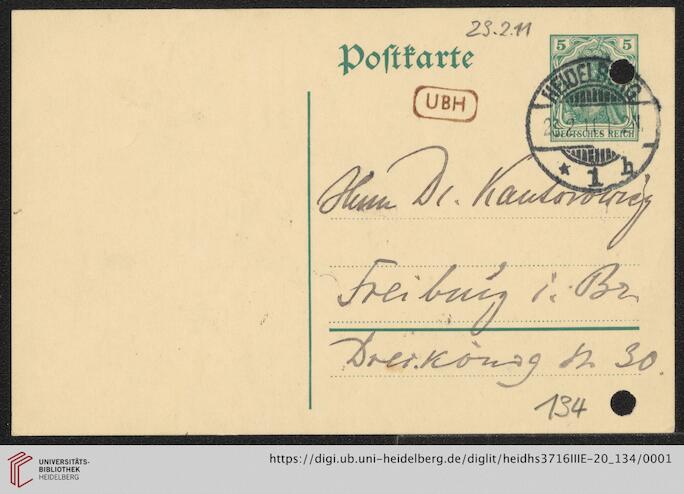 23.2.11
Poſtkarte
5 5
UBH
HEIDELBERG
DEUTSCHES REICH
* 1 h
Herrn Dr. Kantorowicz
Freiburg i. Br.
Dreikönig str 30.
134
UNIVERSITÄTS-
BIBLIOTHEK
HEIDELBERG
https://digi.ub.uni-heidelberg.de/diglit/heidhs3716IIIE-20_134/0001